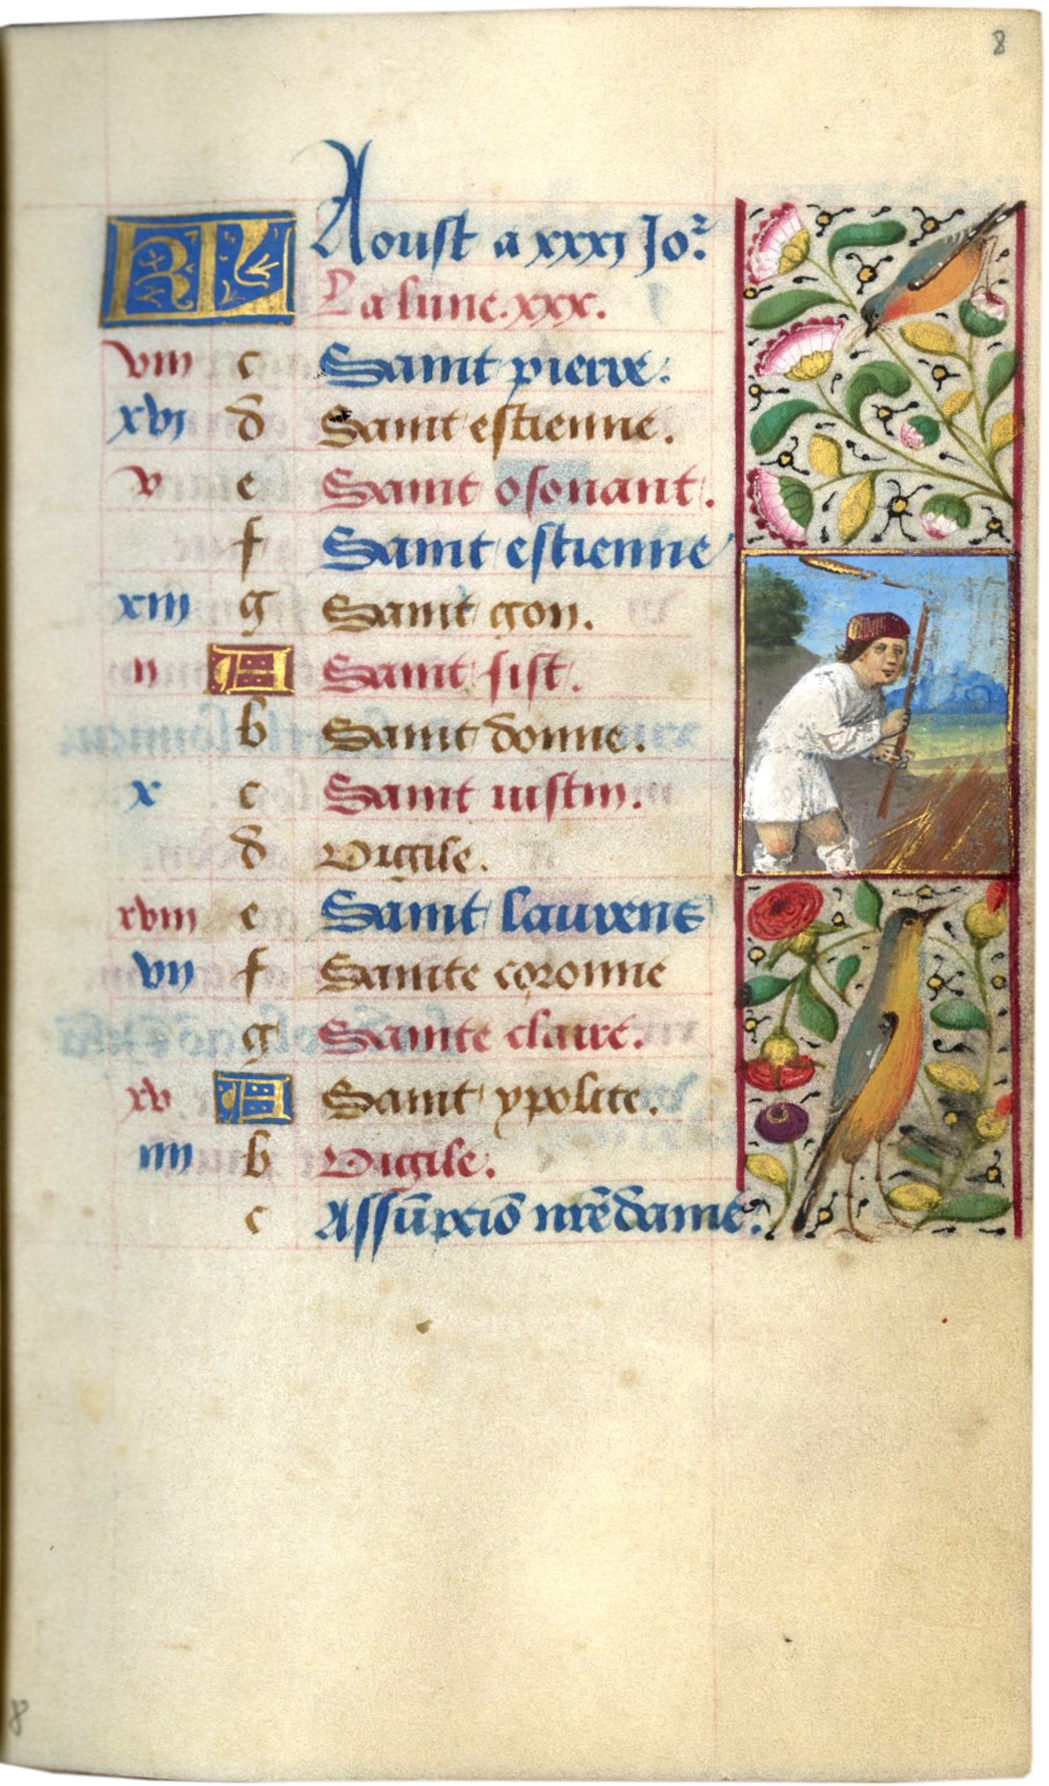 8
KL Aoust a xxxi Jor
La lune. xxx.
viii c Saint pierre.
xvi d Saint estienne.
v e Saint osouant.
f Saint estienne
xiii g Saint gon.
ii A Saint sist.
b Saint donne.
x c Saint iustin.
d Vigile.
xviii e Saint laurens
vii f Sainte coronne
g Sainte claire.
xv A Saint ypolite.
iiii b Vigile.
c Assūpciō nr̄e dame.
8